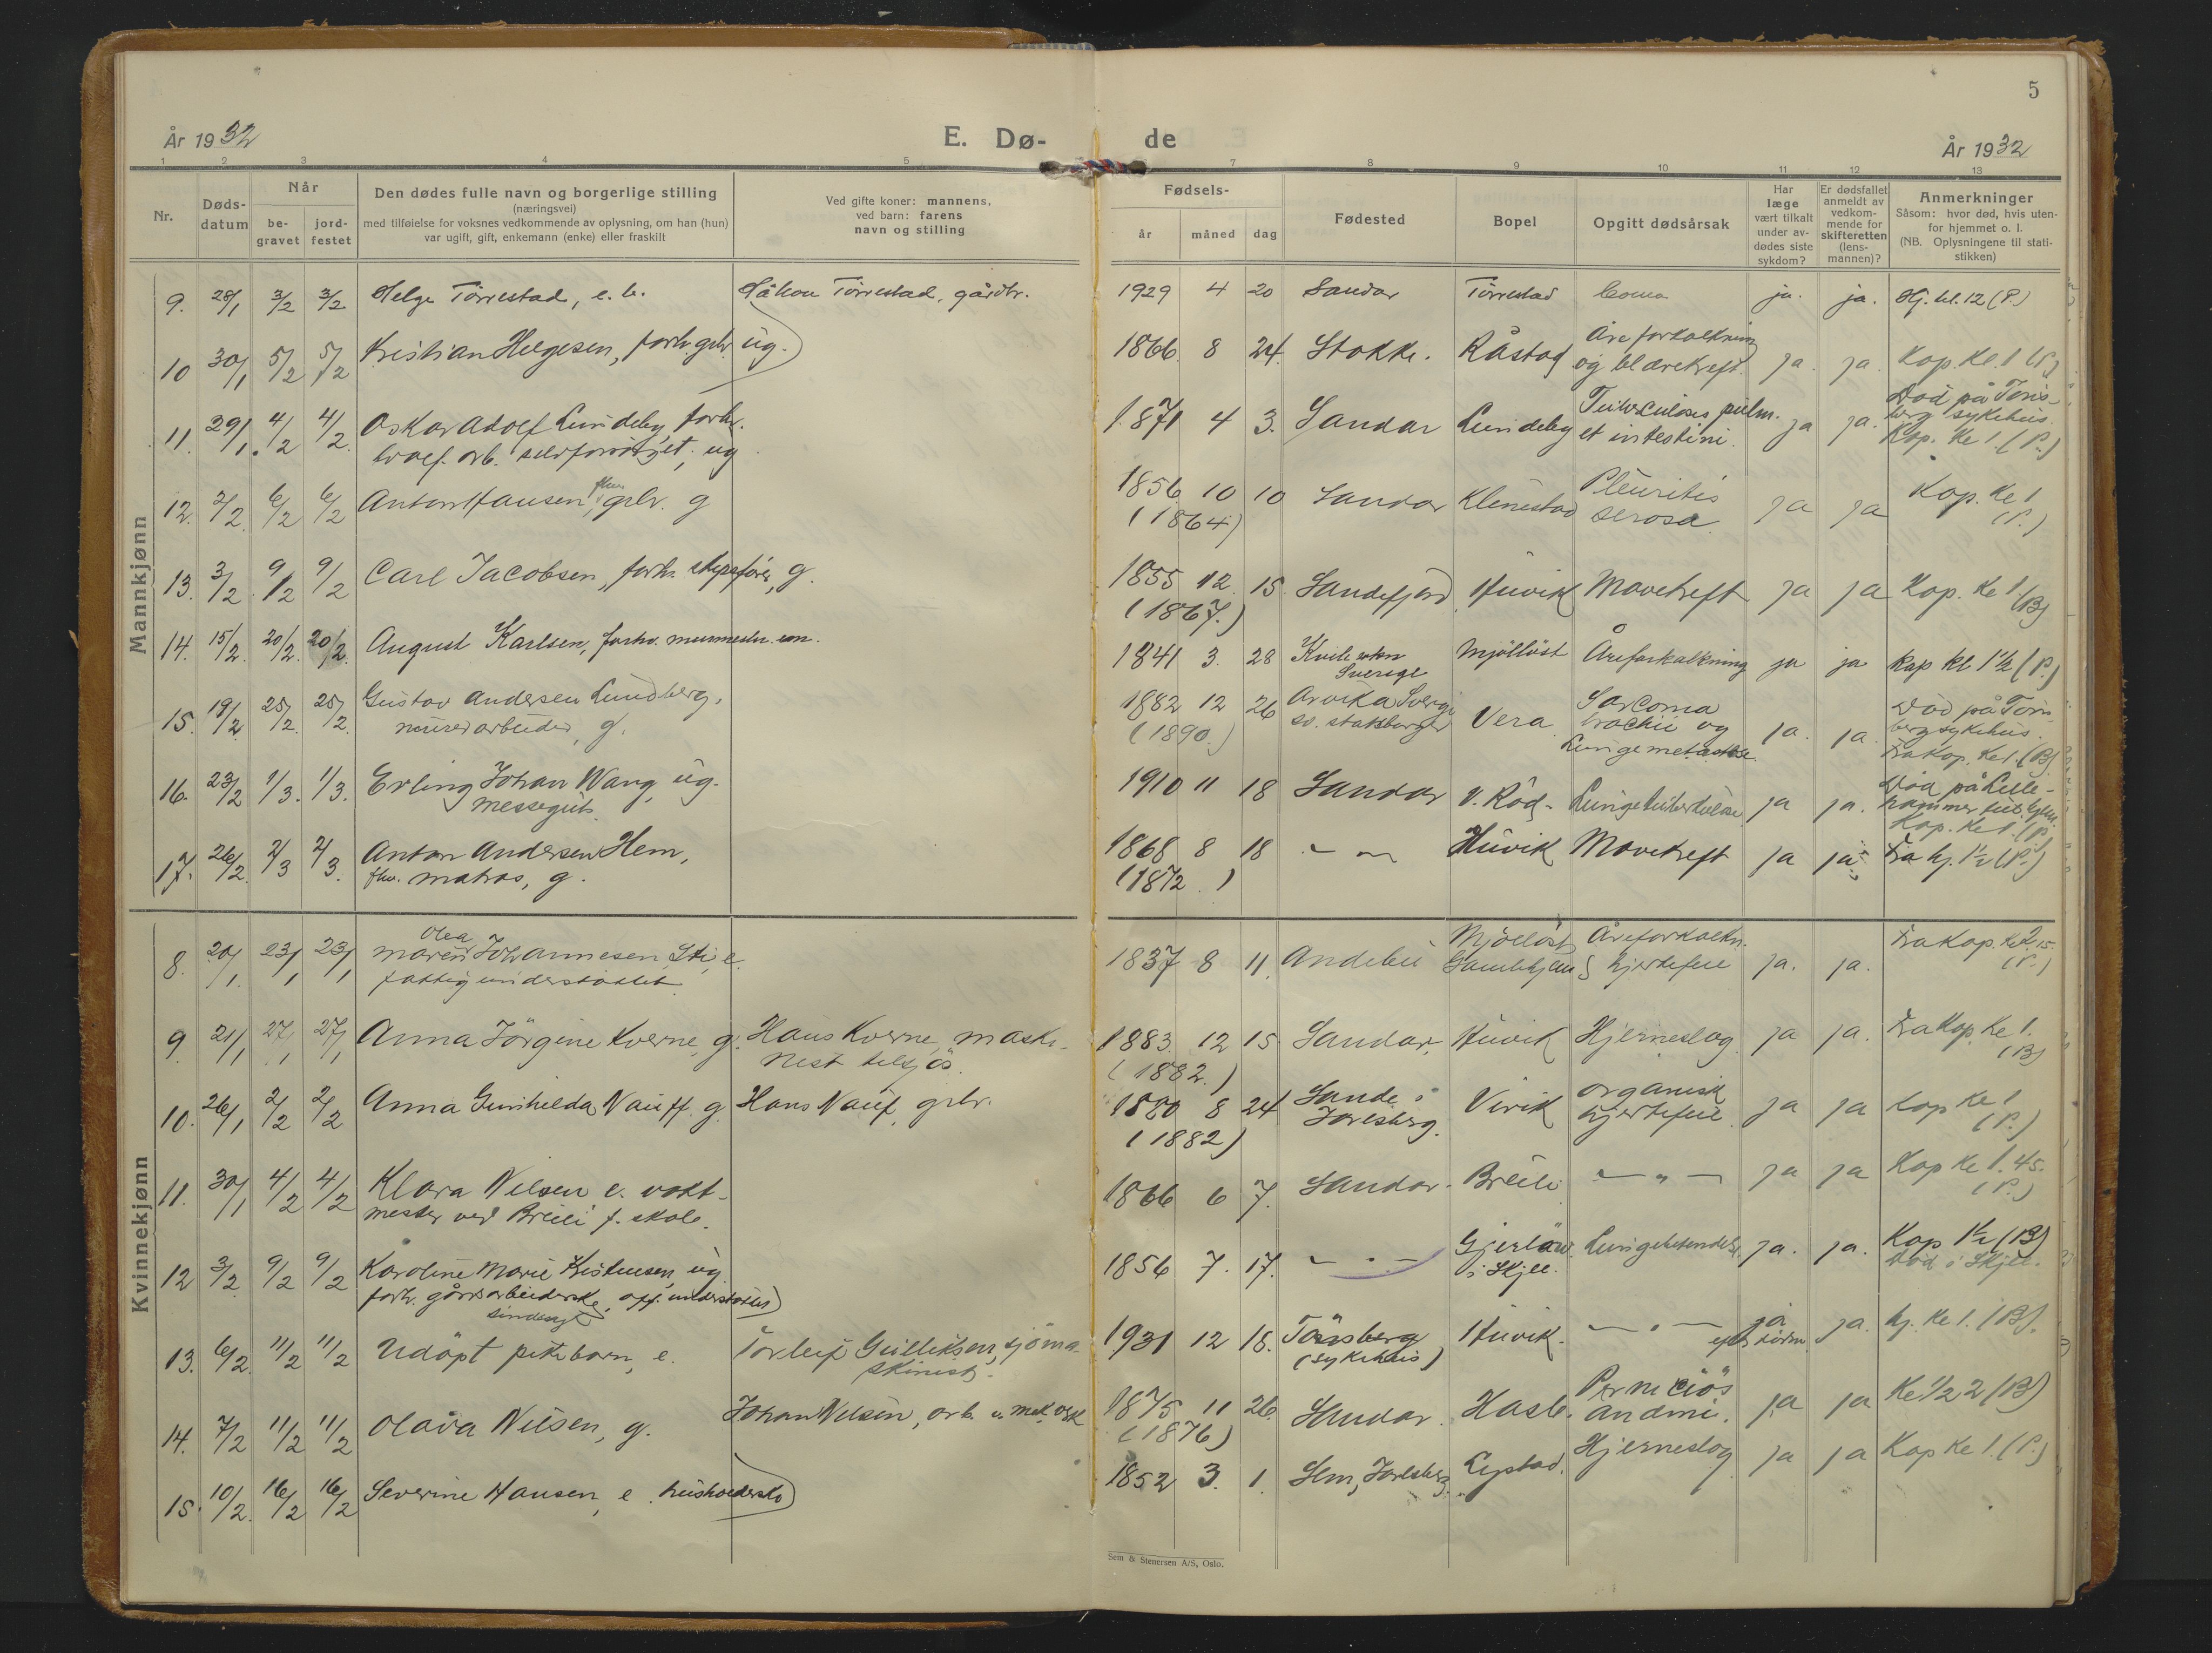 5
År 1932
E. Dø-
de
År 1932
1 2 3 4 5 7 8 9 10 11 12 13
Nr.
Døds-
datum
Når
be-
gravet
jord-
festet
Den dødes fulle navn og borgerlige stilling
(næringsvei)
med tilføielse for voksnes vedkommende av oplysning, om han (hun)
var ugift, gift, enkemann (enke) eller fraskilt
Ved gifte koner: mannens,
ved barn: farens
navn og stilling
Fødsels-
år måned dag
Fødested
Bopel
Opgitt dødsårsak
Har
læge
vært tilkalt
under av-
dødes siste
sykdom?
Er dødsfallet
anmeldt av
vedkom-
mende for
skifteretten
(lens-
mannen)?
Anmerkninger
Såsom: hvor død, hvis uten-
for hjemmet o. l.
(NB. Oplysningene til stati-
stikken)
Mannkjønn
9. 28/1 3/2 3/2 Helge Törrestad, e. b. Håkon Törrestad, gårdbr. 1929 4 20 Sandar Törrestad Coma ja. ja. Hj. kl. 12 (P.)
10 30/1 5/2 5/2 Kristian Helgesen, forh. gbr. ug. 1866. 8 24. Stokke. Råstad Åreforkalkning
og blærekreft. ja. ja. Kap. kl. 1 (P.)
11. 29/1. 4/2 4/2. Oskar Adolf Lundeby, forhv.
hvalf. arb. selvforsörget, ug. 1871 4 3. Sandar Lundeby Tuberkulosis pulm.
et intestini. ja ja. Död på Töns-
berg sykehus.
Kap. kl 1 (P.)
12. 2/2. 6/2 6/2 Anton Hansen, fhv. gbr. g 1856 10 10 Sandar Klinestad Pleuritis
serosa ja ja Kap. kl 1
(1864) (P.)
13. 3/2 9/2 9/2 Carl Jacobsen, forh. skipsförer, g. 1855 12. 15. Sandefjord Huvik Mavekreft ja ja Kap. kl 1
(1867.) (B)
14. 15/2. 20/2. 20/2. August Karlsen, forhv. murmester. em. 1841 3. 28 Kvile sokn
Sverige Mjöllöst Åreforkalkning ja ja Kap kl 1 1/2 (P.)
15. 19/2. 25/2. 25/2. Gustav Andersen Lundberg,
murerarbeider, g. 1882 12 26 Arvika Sverige
sv. statsborger Vera Sarcoma
brachii og
Lungemetastase. ja. ja. Död på Töns-
berg sykehus.
Fra kap. kl 1. (B)
(1890.)
16. 23/2 1/3. 1/3. Erling Johan Wang, ug.
messegutt. 1910 11 18 Sandar V. Röd. Lungetuberkulose ja ja. Död på Lille-
hammer tub. hjem.
Kap. kl 1. (P.)
17. 26/2. 2/3 2/3. Anton Andersen Hem,
fhv. matros, g. 1868 8 18 — „ — Huvik Mavekreft ja ja. Fra hj. 1 1/2 (P.)
(1872.)
Kvinnekjønn
8. 20/1. 23/1 23/1 Maren Olea Johannesen Sti, e.
fattigunderstöttet. 1837 8 11. Andebu Mjöllöst
Gamlehjem Åreforkalkn.
& hjertefeil ja. ja. Fra kap. kl 2.15.
(P.)
9. 21/1 27/1 27/1 Anna Jörgine Kverne, g. Hans Kverne, maski-
nist tilsjös. 1883. 12 15 Sandar, Huvik Hjerneslag ja ja. Fra Kap. kl 1.
(1882.) (B)
10. 26/1 2/2 2/2 Anna Gunhilda Nauff. g. Hans Nauf, gbr. 1880 8 24 Sande i
Jarlsberg. Virik organisk
hjertefeil ja ja Kap kl 1
(1882) (P.)
11. 30/1 4/2 4/2 Klara Nilsen e. vakt-
mester ved Breili f. skole. 1866 6 7. Sandar. Breili — „ — ja ja Kap kl 1.45.
(P.)
12 3/2 9/2 9/2 Karoline Marie Kristensen, ug.
forh. gårdsarbeiderske, off. understöttet
sindssyk 1856 7. 17. — „ — Gjerlöw
i Skjee. Lungebetendelse. ja. ja. Kap 1 1/2 (B)
Död i Skjee.
13. 6/2. 11/2 11/2 Udöpt pikebarn, e. Torleif Gulliksen, sjöma-
skinist. 1931 12 18. Tönsberg
(sykehus) Huvik. — „ — ja ja. hj. kl 1. (B).
14. 7/2 11/2 11/2 Olava Nilsen, g. Johan Nilsen, arb. v. mek. verk 1875 11 26. Sandar. Hasle. Perniciös
anämi. ja ja Kl 1/2 2 (B)
(1876)
15. 10/2. 16/2 16/2 Severine Hansen, e. husholderske 1852 3. 1. Sem, Jarlsberg. Lystad. Hjerneslag ja ja Kap kl 1. (P.)
Sem & Stenersen A/S, Oslo.